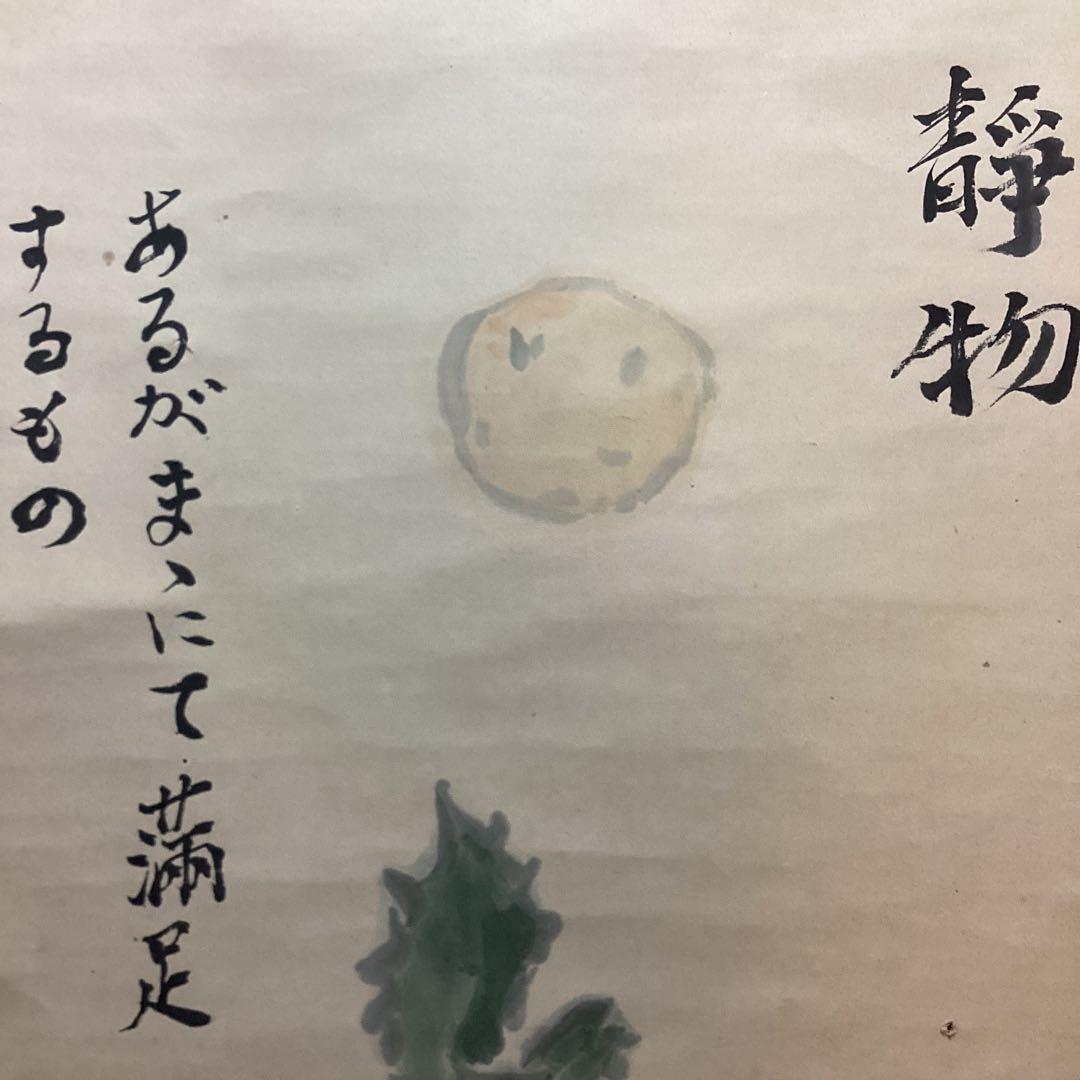 靜物
あるがまゝにて滿足
するもの